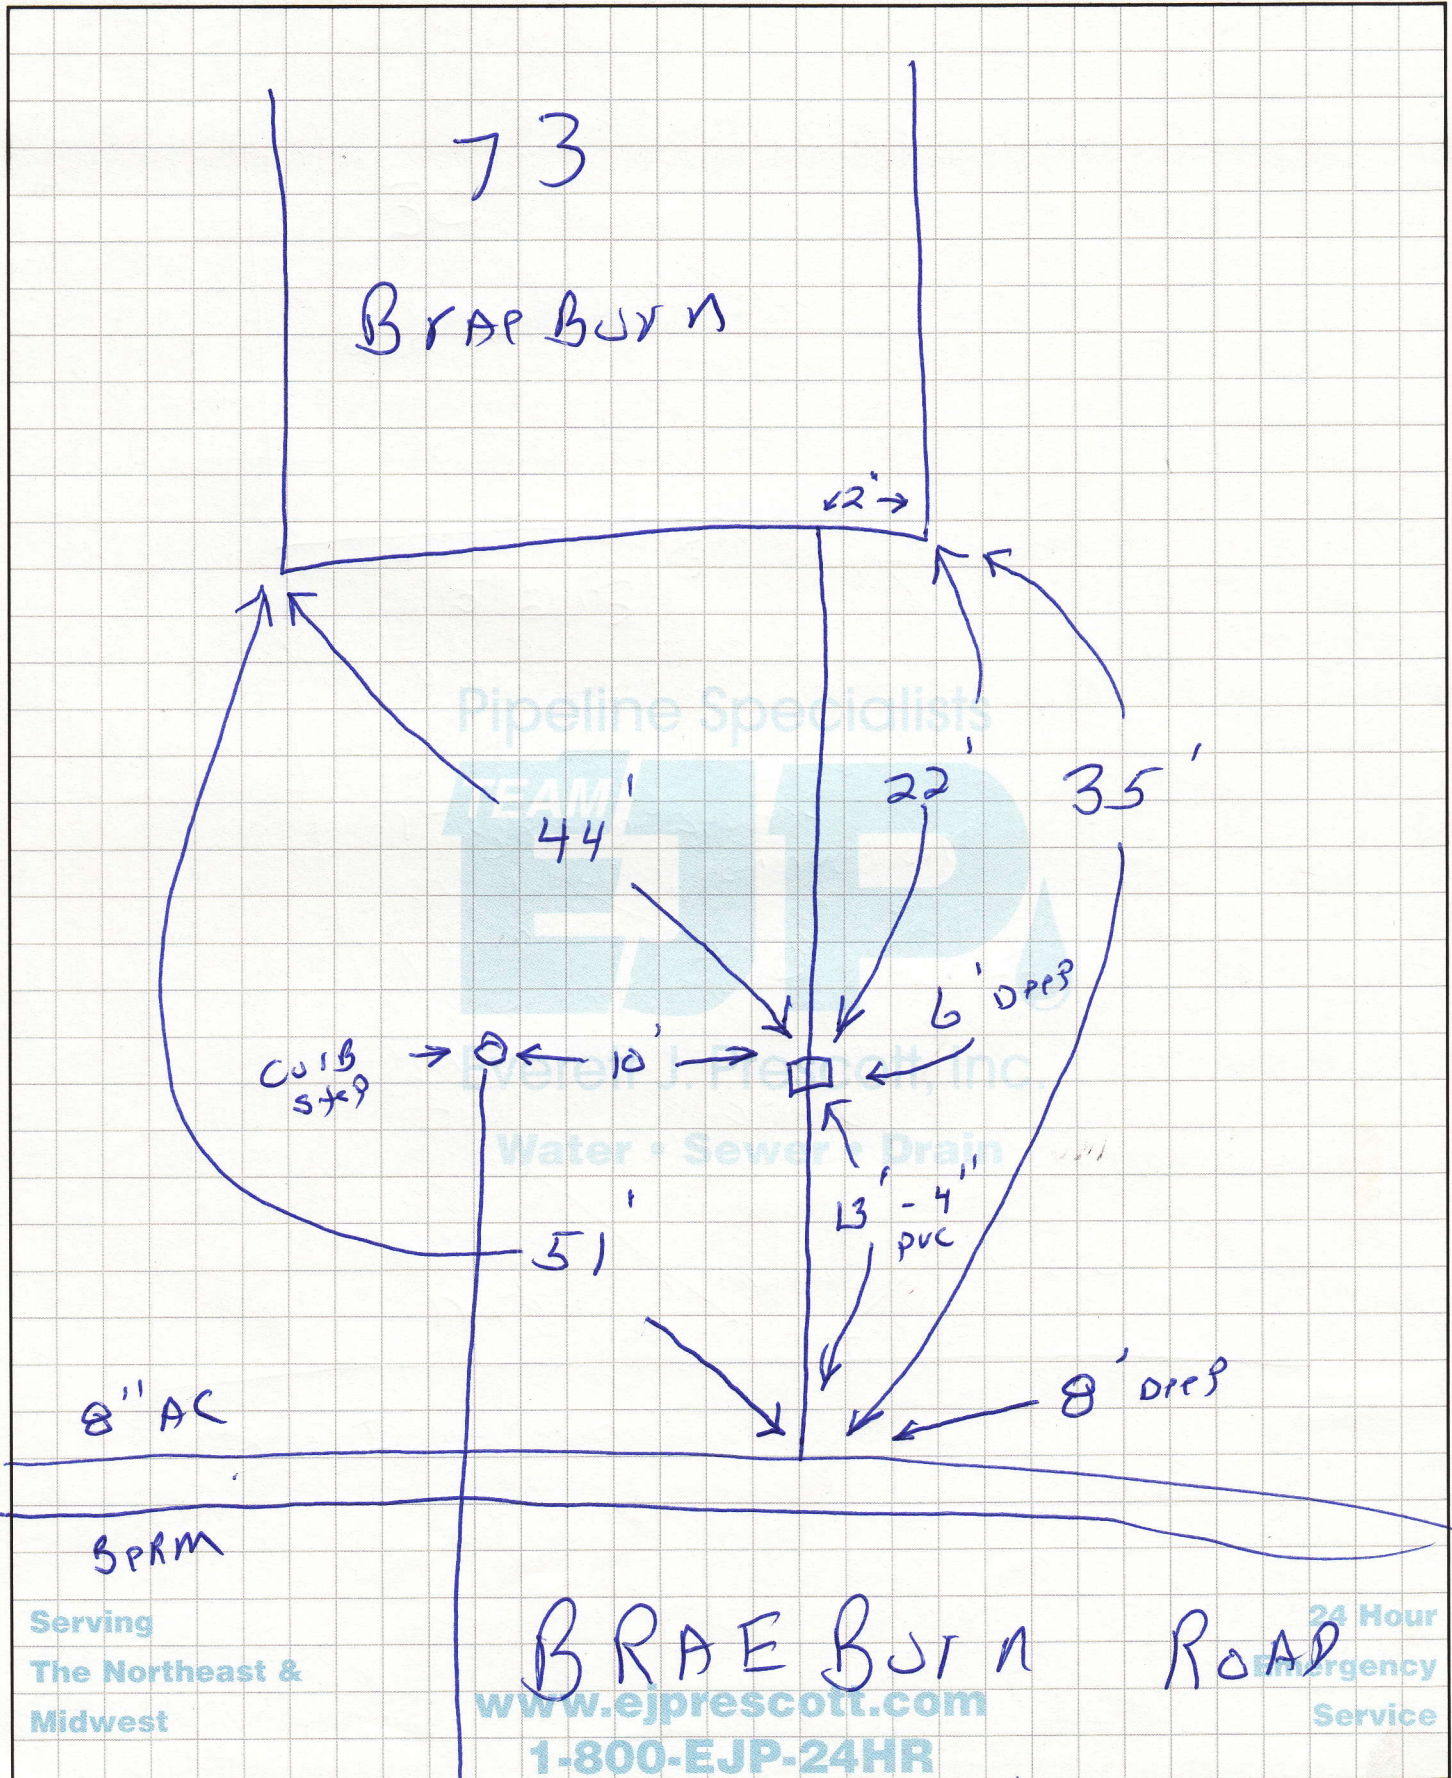 73
BraeBurn
2"
Pipeline Specialists
TEAM
EJP
22'
35'
44'
6' Deep
Curb
stop
10'
Everett J. Prescott, Inc.
Water • Sewer • Drain
13' - 4"
PVC
51'
8' Deep
8" AC
BRAEBurn ROAD
Serving
The Northeast &
Midwest
24 Hour
Emergency
Service
www.ejprescott.com
1-800-EJP-24HR